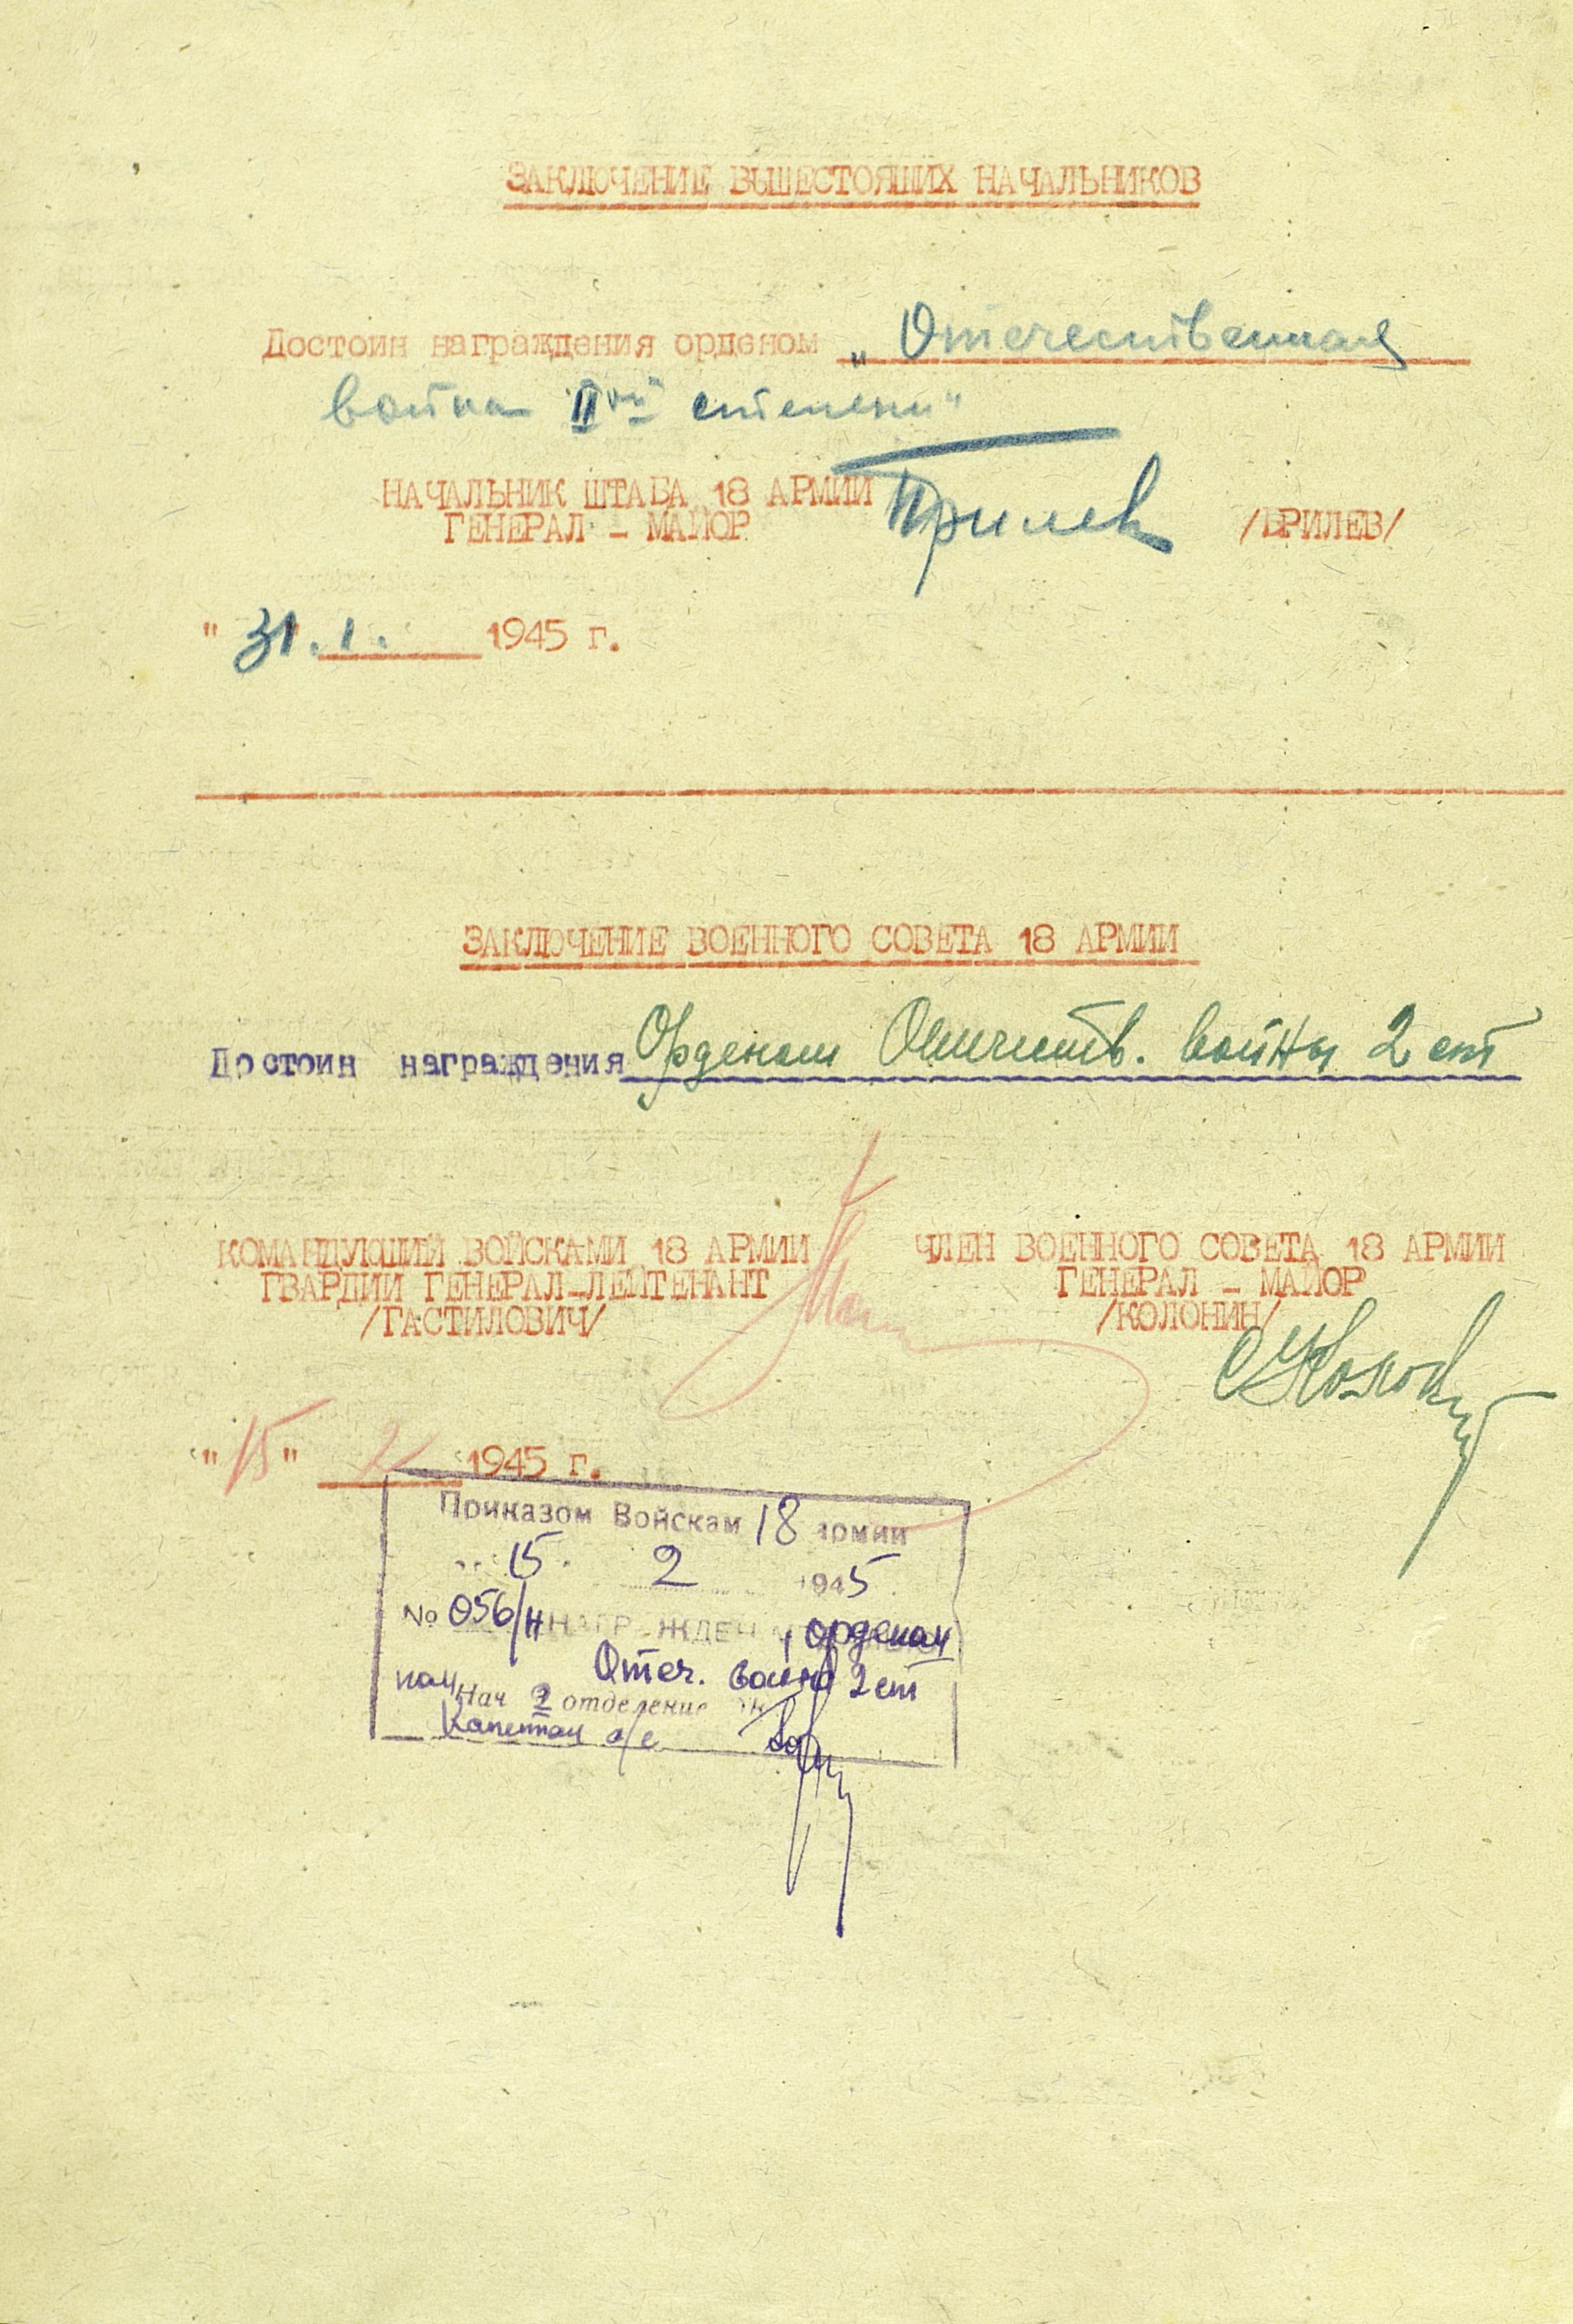 ЗАКЛЮЧЕНИЕ ВЫШЕСТОЯЩИХ НАЧАЛЬНИКОВ
Достоин награждения орденом „Отечественная
война II ой степени"
НАЧАЛЬНИК ШТАБА 18 АРМИИ
ГЕНЕРАЛ - МАЙОР
/БРИЛЕВ/
"31.1. 1945 г.
ЗАКЛЮЧЕНИЕ ВОЕННОГО СОВЕТА 18 АРМИИ
Достоин награждения Орденом Отечеств. войны 2 ст
КОМАНДУЮЩИЙ ВОЙСКАМИ 18 АРМИИ
ГВАРДИИ ГЕНЕРАЛ-ЛЕЙТЕНАНТ
/ГАСТИЛОВИЧ/
ЧЛЕН ВОЕННОГО СОВЕТА 18 АРМИИ
ГЕНЕРАЛ - МАЙОР
/КОЛОНИН/
"15" 2 1945 г.
Приказом Войскам 18 армии
15. 2 1945
№ 056/н НАГРАЖДЕН орденом
Отеч. войны 2 ст
пом Нач 2 отделение
Капитан а/с